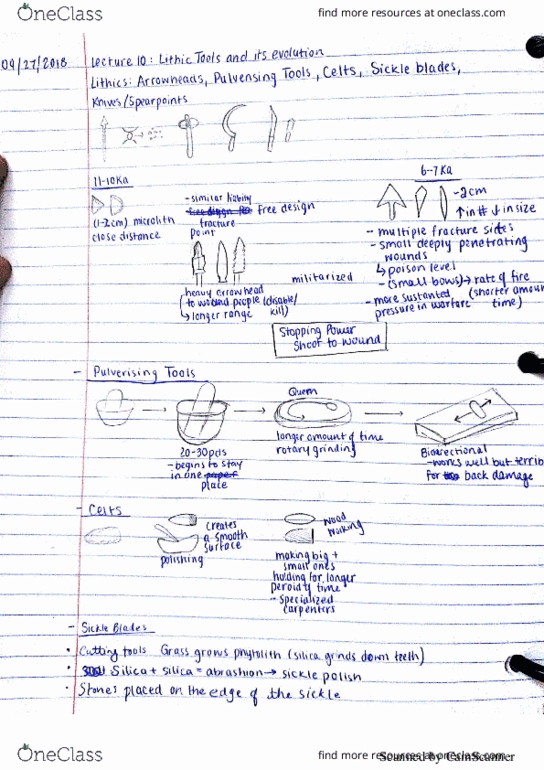 OneClass
find more resources at oneclass.com
09/27/2018
Lecture 10: Lithic Tools and its evolution
Lithics: Arrowheads, Pulvensing Tools, Celts, Sickle blades,
Knives/Spearpoints
11-10Ka
(1-2cm) microlith
close distance
- similar
free design
fracture
point
heavy arrowhead
(to wound people (disable/
kill)
↳ longer range
militarized
6-7Ka
-2cm
↑ in # ↓ in size
- multiple fracture sides
- small deeply penetrating
wounds
↳ poison level
- (small bows) → rate of fire
(shorter amoun
time)
- more sustanted
pressure in warfare
Stopping Power
Shoot to wound
- Pulverising Tools
20-30pcls
- begins to stay
in one
place
Quern
longer amount of time
rotary grinding
Bidirectional
- works well but terrib
for back damage
- Celts
polishing
creates
a smooth
surface
wood
making big +
small ones
holding for longer
peroid of time
- specialized
carpenters
- Sickle Blades
• Cutting tools Grass grows phytolith (silica grinds down teeth)
• Silica + silica = abrashion → sickle polish
• Stones placed on the edge of the sickle
OneClass
find more resources at oneclass.com
Scanned by CamScanner